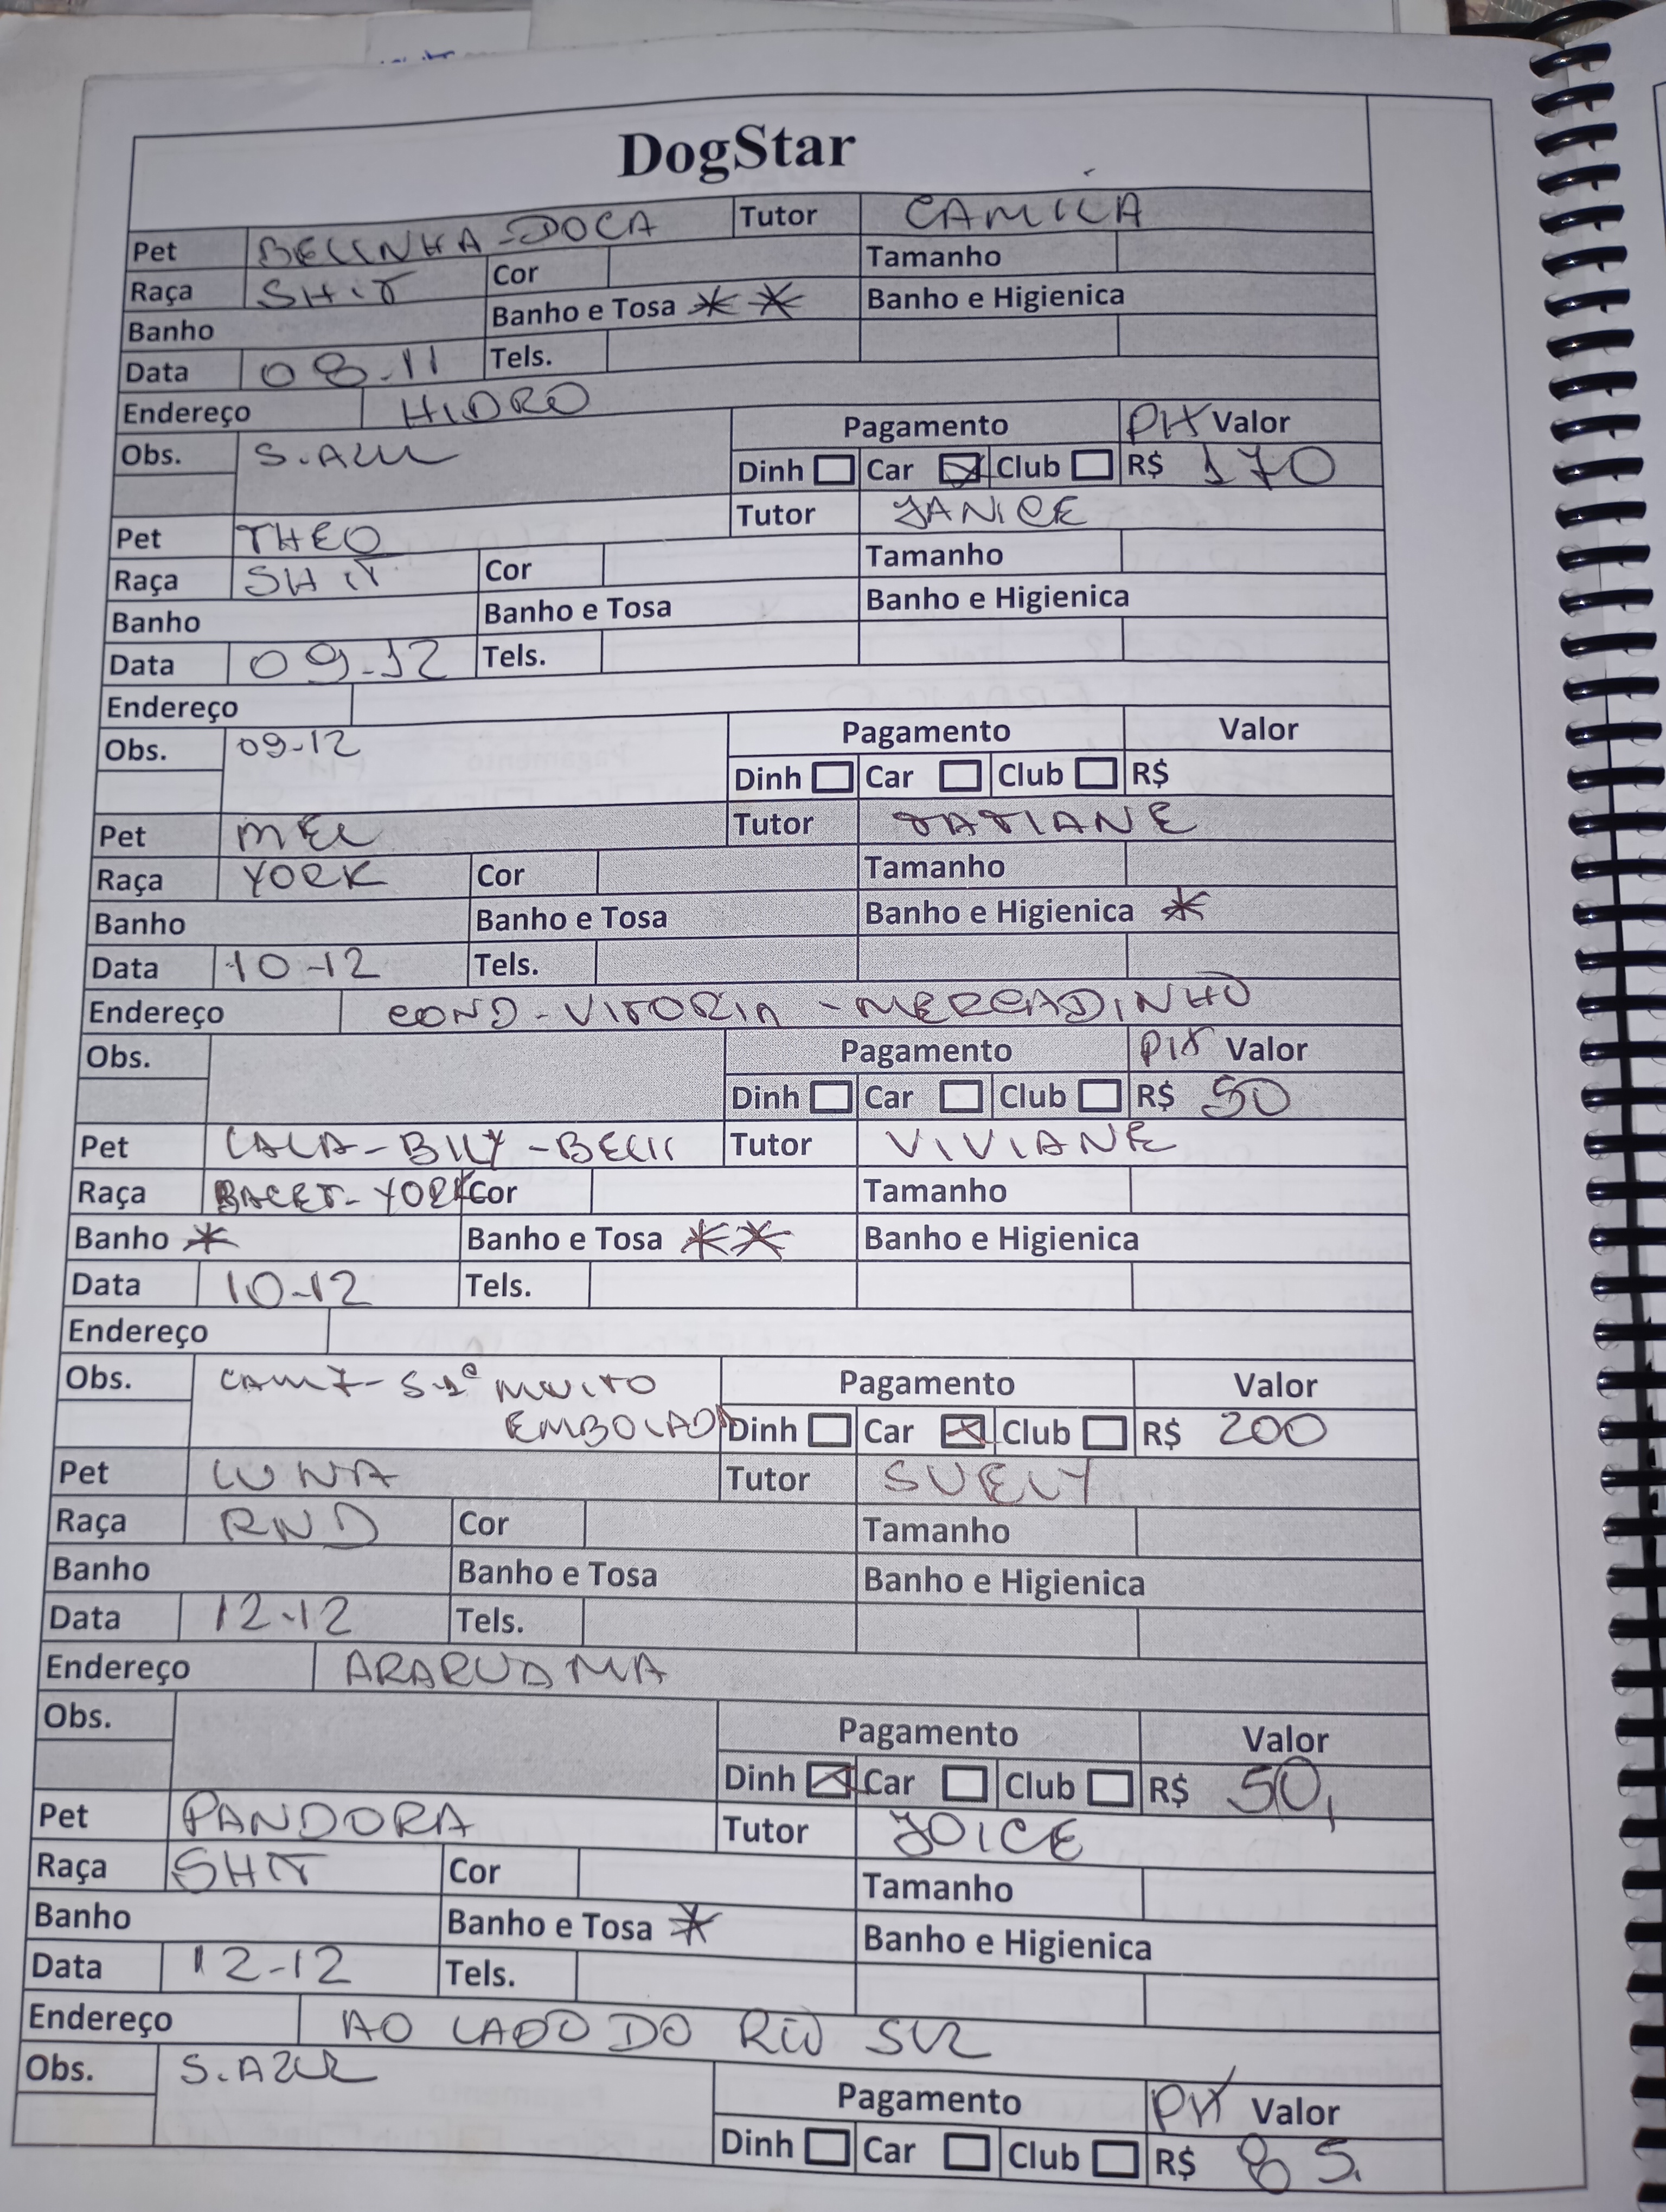 DogStar
Pet BELINHA-DOCA Tutor CAMILA
Raça SHIT Cor Tamanho
Banho Banho e Tosa * * Banho e Higienica
Data 08.11 Tels.
Endereço HIDRO
Obs. S.AZUL Pagamento PIX Valor
Dinh Car Club R$ 170
Pet THEO Tutor JANICE
Raça SHIT Cor Tamanho
Banho Banho e Tosa Banho e Higienica
Data 09-12 Tels.
Endereço
Obs. 09-12 Pagamento Valor
Dinh Car Club R$
Pet MEL Tutor TATIANE
Raça YORK Cor Tamanho
Banho Banho e Tosa Banho e Higienica *
Data 10-12 Tels.
Endereço COND-VITORIA-MERCADINHO
Obs. Pagamento PIX Valor
Dinh Car Club R$ 50
Pet LALA-BILY-BELI Tutor VIVIANE
Raça BACET-YORK Cor Tamanho
Banho * Banho e Tosa ** Banho e Higienica
Data 10-12 Tels.
Endereço
Obs. MUITO Pagamento Valor
EMBOLADO Dinh Car Club R$ 200
Pet LUNA Tutor SUELY
Raça RND Cor Tamanho
Banho Banho e Tosa Banho e Higienica
Data 12-12 Tels.
Endereço ARARUAMA
Obs. Pagamento Valor
Dinh Car Club R$ 50,
Pet PANDORA Tutor JOICE
Raça SHIT Cor Tamanho
Banho Banho e Tosa * Banho e Higienica
Data 12-12 Tels.
Endereço AO LADO DO RIO SUL
Obs. S.AZUL Pagamento PIX Valor
Dinh Car Club R$ 85.